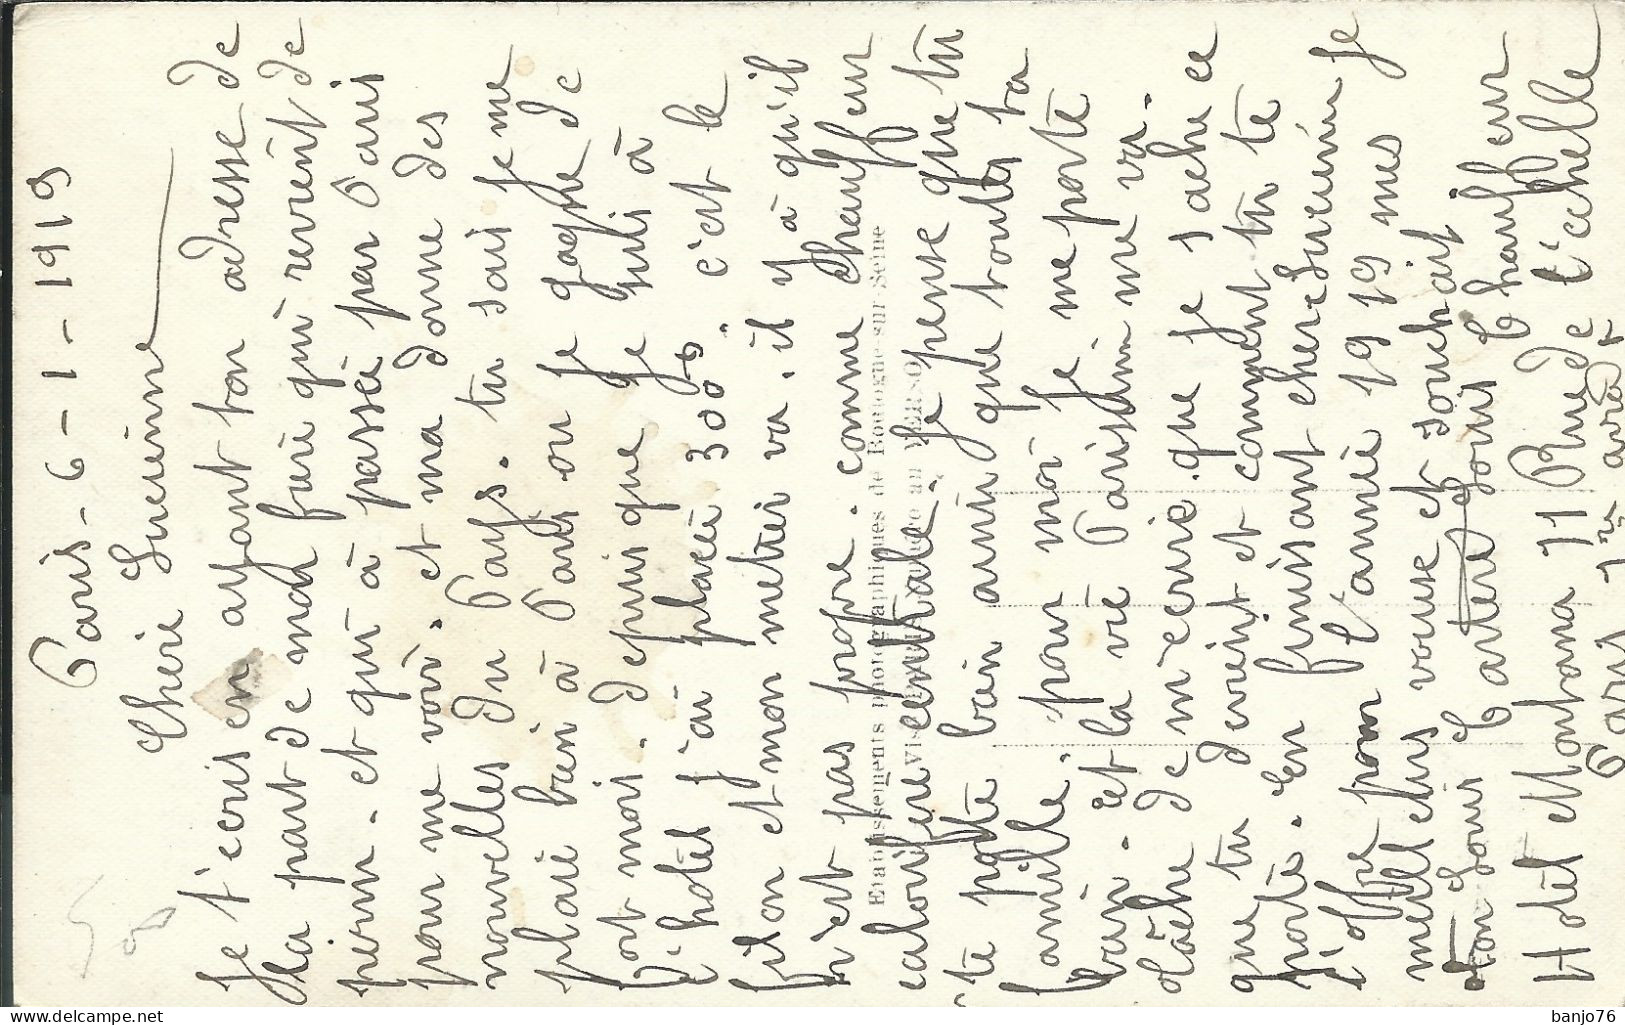 Paris - 6 - 1 - 1919
Cherie Lucienne
Je t'ecris en ayant ton adresse de
la part de mon frère qui revient de
perm. et qui à passée par Paris
pour me voir. et ma donne des
nouvelles du Pays. tu sais je me
plaie bien à Paris ou je gagne de
fort mois. depuis que je suis à
l'hotel j'ai placée 300f c'est le
filon et mon metier va. il y à qu'il
n'est pas propre. comme chauffeur
calorifere centrale. Je pense que tu
te porte bien ainsi que toutes ta
famille. pour moi je me porte
bien. et la vie Parisien me va.
tâche de m'ecrire que je sache ce
que tu devient et comment tu te
porte. En finissant chere Lucienne je
t'offre pour l'année 1919 mes
meilleurs voeuse et souhait
Ton Louis Cartere Louis Chauffeur
Hotel Montana 11 Rue de l'echelle
Paris 1er
Etablissements photographiques de Boulogne-sur-Seine
au VERSO
banjo76